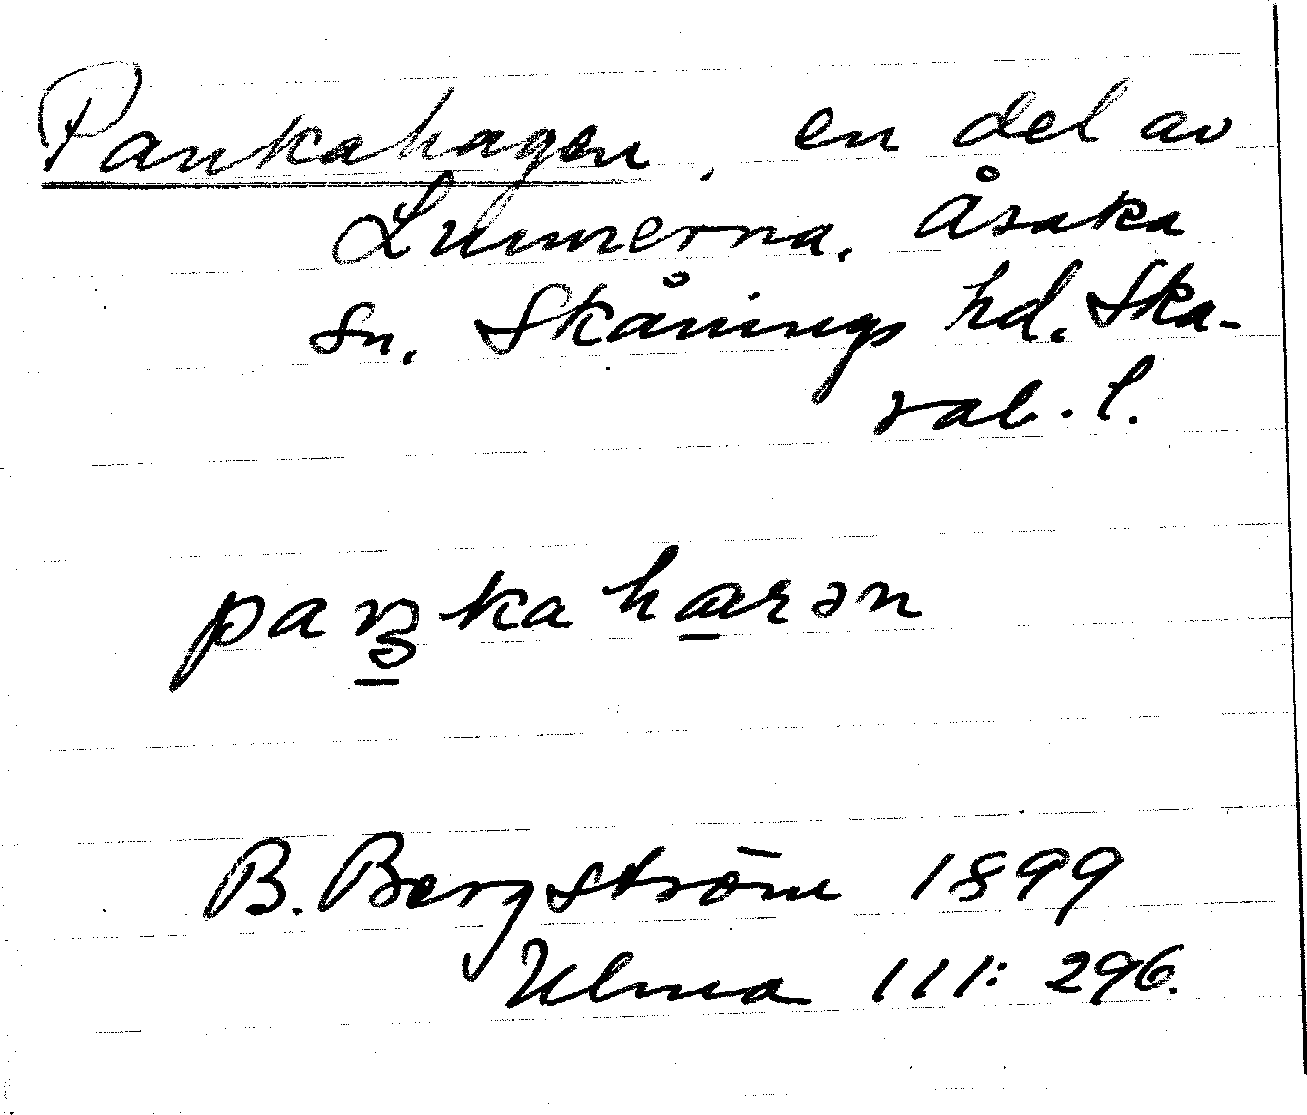 Pankahagen, en del av
Lunnerna. Åsaka
sn. Skånings hd. Ska-
rab. l.
paŋka harən
B. Bergström 1899
Ulma 111: 296.